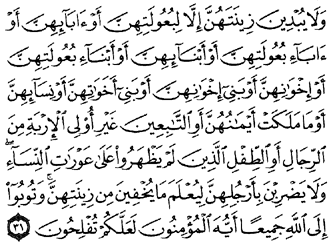 وَلَا يُبْدِينَ زِينَتَهُنَّ إِلَّا لِبُعُولَتِهِنَّ أَوْ ءَابَآئِهِنَّ أَوْ
ءَابَآءِ بُعُولَتِهِنَّ أَوْ أَبْنَآئِهِنَّ أَوْ أَبْنَآءِ بُعُولَتِهِنَّ
أَوْ إِخْوَٰنِهِنَّ أَوْ بَنِىٓ إِخْوَٰنِهِنَّ أَوْ بَنِىٓ أَخَوَٰتِهِنَّ أَوْ نِسَآئِهِنَّ
أَوْ مَا مَلَكَتْ أَيْمَٰنُهُنَّ أَوِ ٱلتَّٰبِعِينَ غَيْرِ أُو۟لِى ٱلْإِرْبَةِ مِنَ
ٱلرِّجَالِ أَوِ ٱلطِّفْلِ ٱلَّذِينَ لَمْ يَظْهَرُوا۟ عَلَىٰ عَوْرَٰتِ ٱلنِّسَآءِ ۖ
وَلَا يَضْرِبْنَ بِأَرْجُلِهِنَّ لِيُعْلَمَ مَا يُخْفِينَ مِن زِينَتِهِنَّ ۚ وَتُوبُوٓا۟
إِلَى ٱللَّهِ جَمِيعًا أَيُّهَ ٱلْمُؤْمِنُونَ لَعَلَّكُمْ تُفْلِحُونَ ٣١